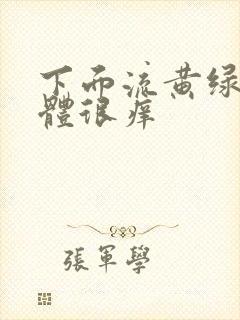 下面流黄绿
體很痒
張軍學